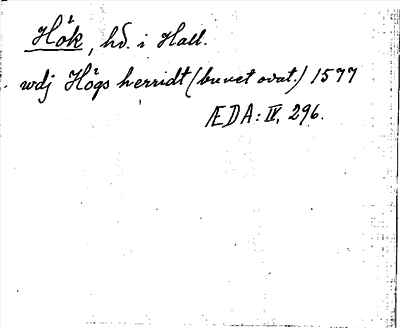 Hök, hd. i Hall.
wdj Högs herridt (buvet ovat.) 1577
ÆDA: IV, 296.